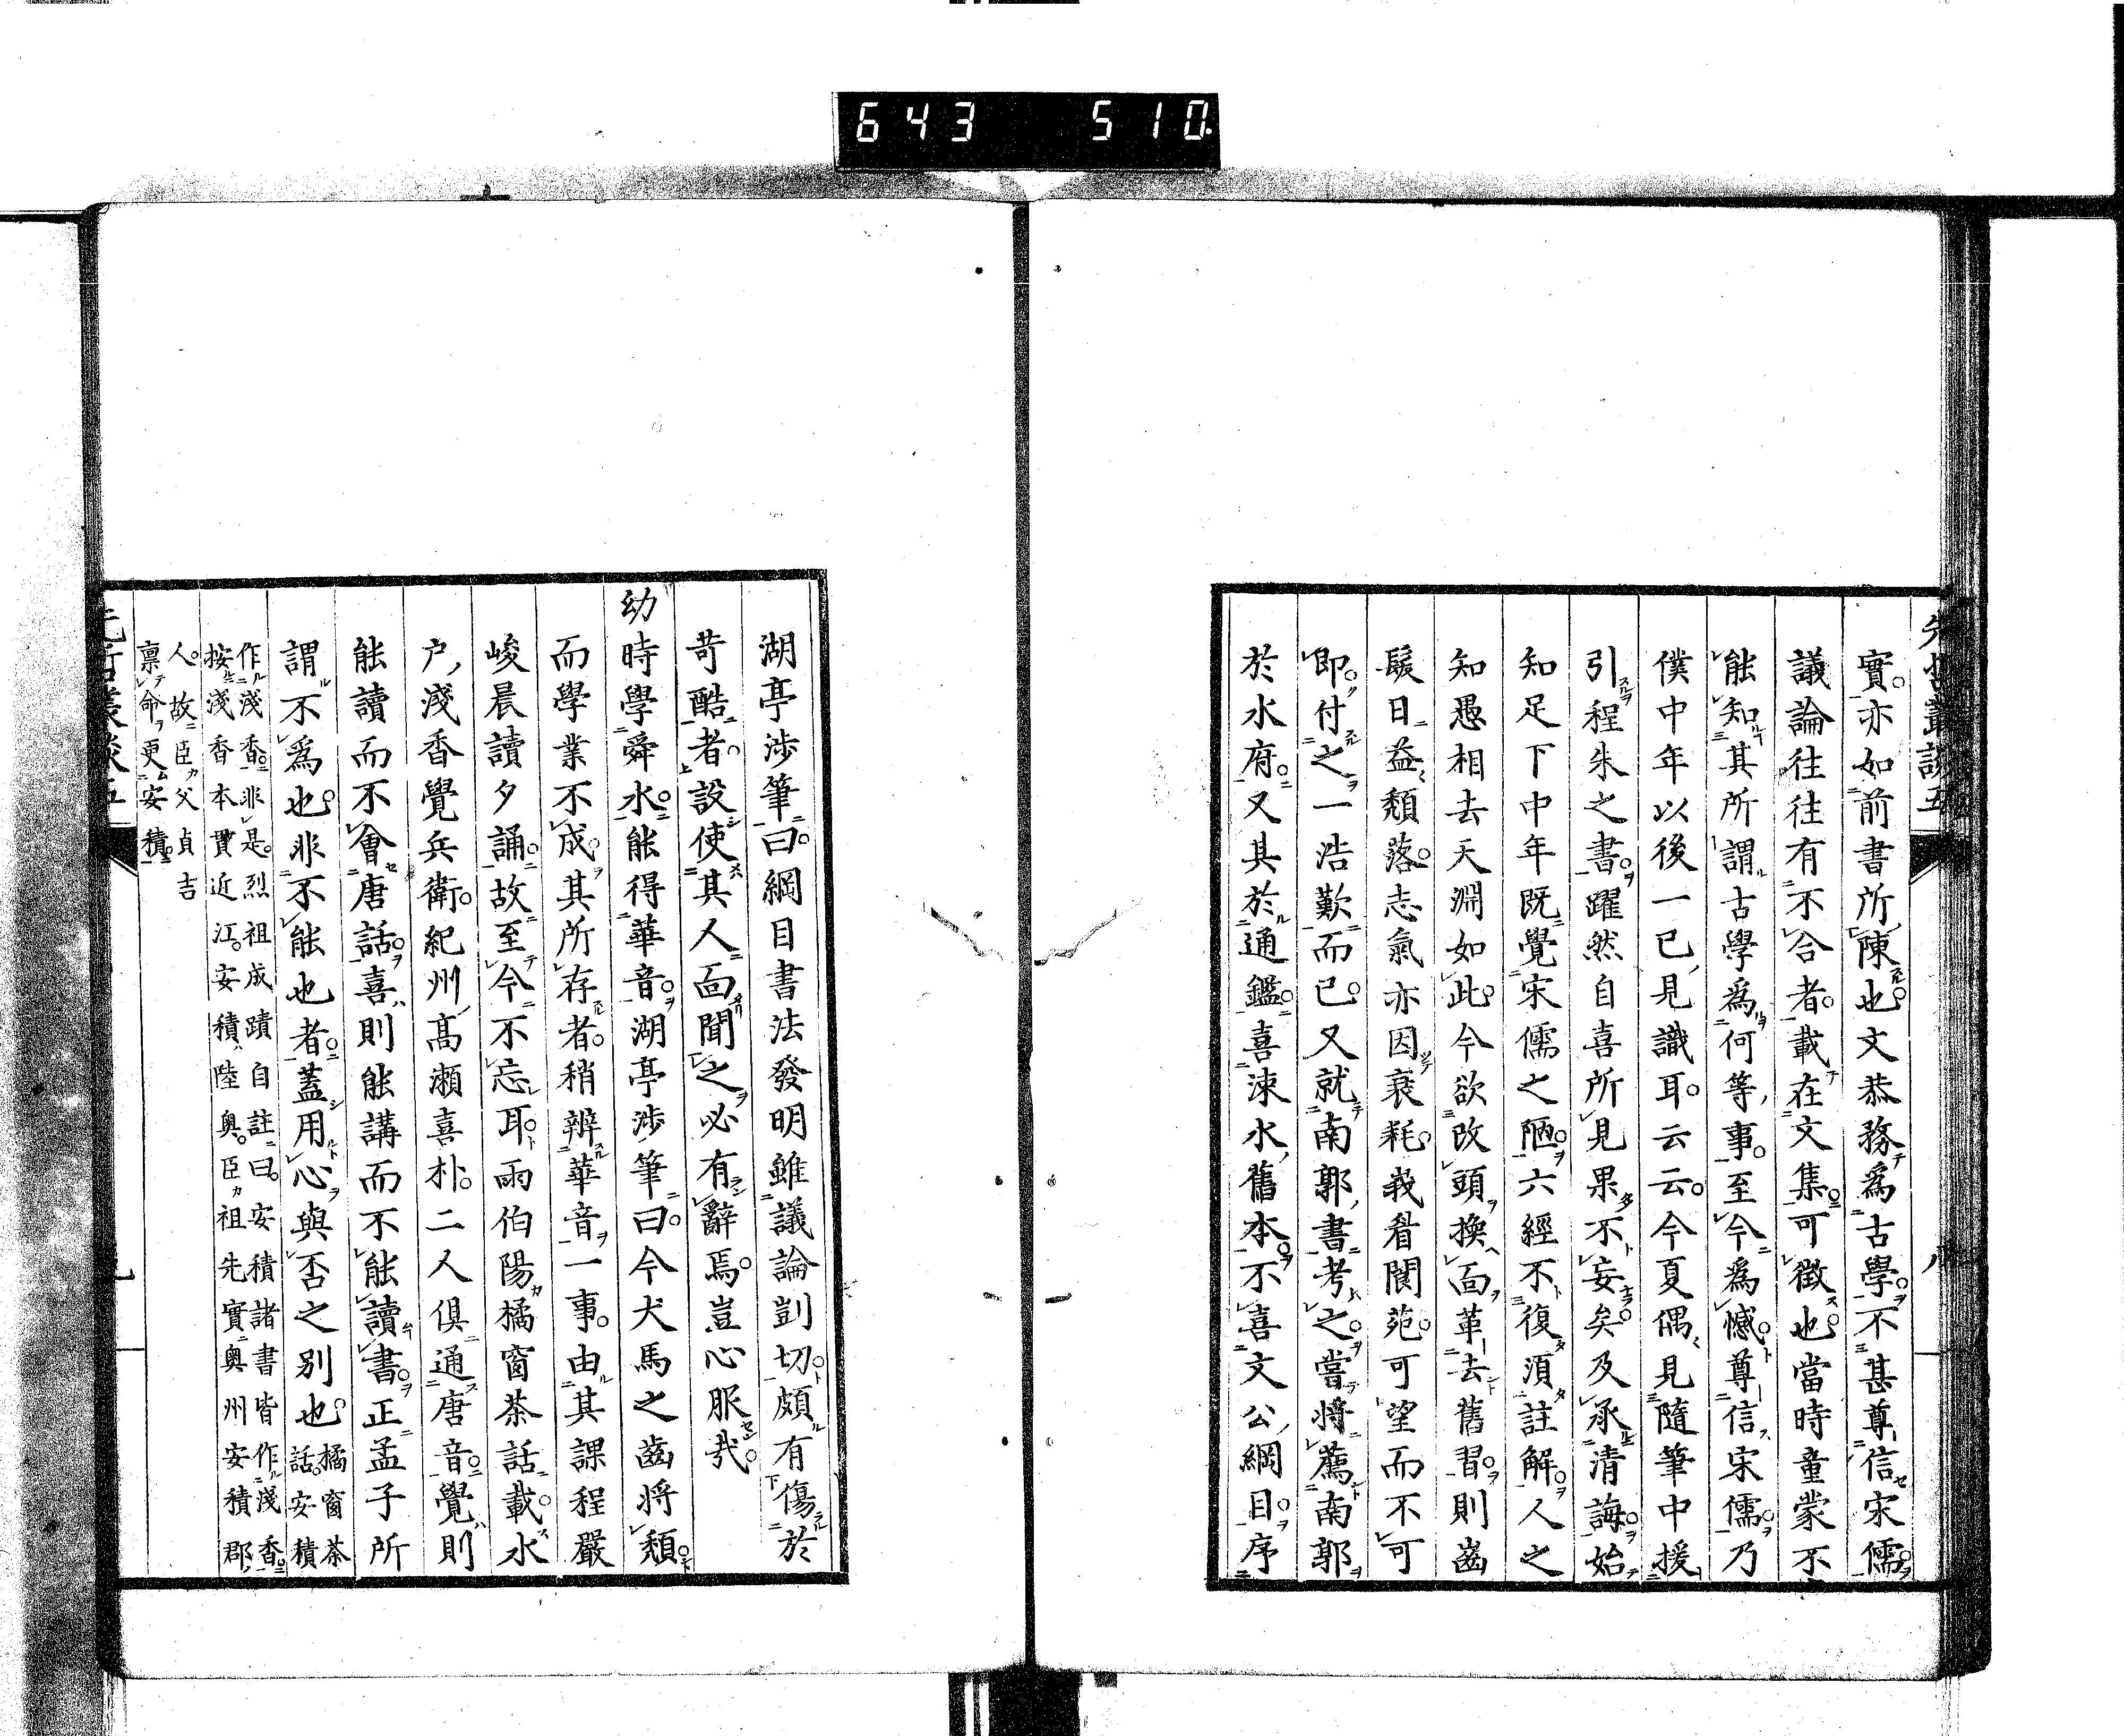 643 510
先哲叢談五
八
實。亦如前書所陳也。文恭務爲古學。不甚尊信宋儒。
議論往往有不合者。載在文集。可徵也。當時童蒙不
能知其所謂古學爲何等事。至今爲憾。尊信宋儒。乃
僕中年以後一已見識耳。云云。今夏偶見隨筆中援
引程朱之書。躍然自喜所見果不妄矣。及承清誨。始
知足下中年既覺宋儒之陋。六經不復須註解。人之
知愚相去天淵如此。今欲改頭換面。革去舊習。則齒
髮日益頽落。志氣亦因衰耗。峩眉閬苑。可望而不可
即。付之一浩歎而已。又就南郭書考之。嘗將薦南郭
於水府。又其於通鑑。喜涑水舊本。不喜文公綱目。序
湖亭渉筆曰。綱目書法發明雖議論剴切。頗有傷於
苛酷者。設使其人面聞之。必有辭焉。豈心服哉。
幼時學舜水。能得華音。湖亭渉筆曰。今犬馬之齒將頽。
而學業不成。其所存者。稍辨華音一事。由其課程嚴
峻晨讀夕誦。故至今不忘耳。雨伯陽橘窗茶話載。水
戶淺香覺兵衛。紀州高瀨喜朴。二人俱通唐音。覺則
能讀而不會唐話。喜則能講而不能讀書。正孟子所
謂不爲也。非不能也者。蓋用心與否之別也。橘窗茶
話。安積
作淺香。非是。烈祖成蹟自註曰。安積諸書皆作淺香。
按淺香本貫近江。安積陸奥。臣祖先實奥州安積郡
人。故臣父貞吉
禀命更安積。
先哲叢談五
九